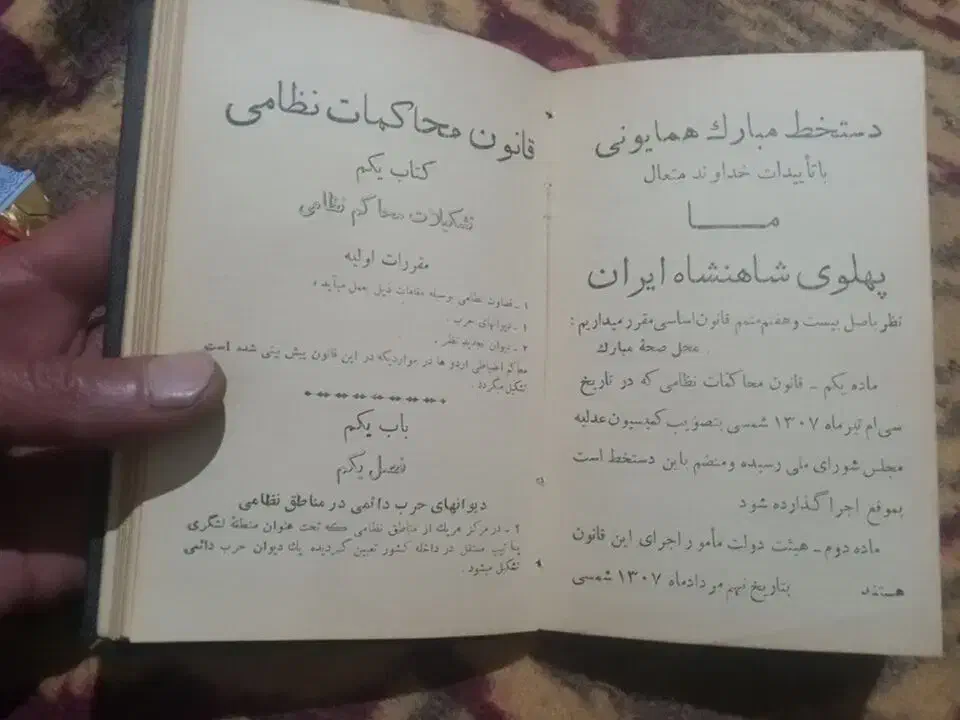 دستخط مبارك همایونی
با تأییدات خداوند متعال
ما
پهلوی شاهنشاه ایران
نظر باصل بیست و هفتم متمم قانون اساسی مقرر میداریم :
محل صحهٔ مبارك
ماده یکم ـ قانون محاکمات نظامی که در تاریخ
سی‌ام تیرماه ۱۳۰۷ شمسی بتصویب کمیسیون عدلیه
مجلس شورای ملی رسیده و منضم باین دستخط است
بموقع اجرا گذارده شود
ماده دوم ـ هیئت دولت مأمور اجرای این قانون
هستند بتاریخ نهم مردادماه ۱۳۰۷ شمسی
قانون محاکمات نظامی
کتاب یکم
تشکیلات محاکم نظامی
مقررات اولیه
۱ ـ قضاوت نظامی بوسیله مقامات ذیل بعمل میآید :
۱ ـ دیوانهای حرب .
۲ ـ دیوان تجدید نظر .
محاکم انضباطی اردو ها در مواردیکه در این قانون پیش بینی شده است
تشکیل میگردد .
باب یکم
فصل یکم
دیوانهای حرب دائمی در مناطق نظامی
۲ ـ در مرکز هریك از مناطق نظامی که تحت عنوان منطقهٔ لشگری
یا تیپ مستقل در داخله کشور تعیین گردیده یك دیوان حرب دائمی
تشکیل میشود .